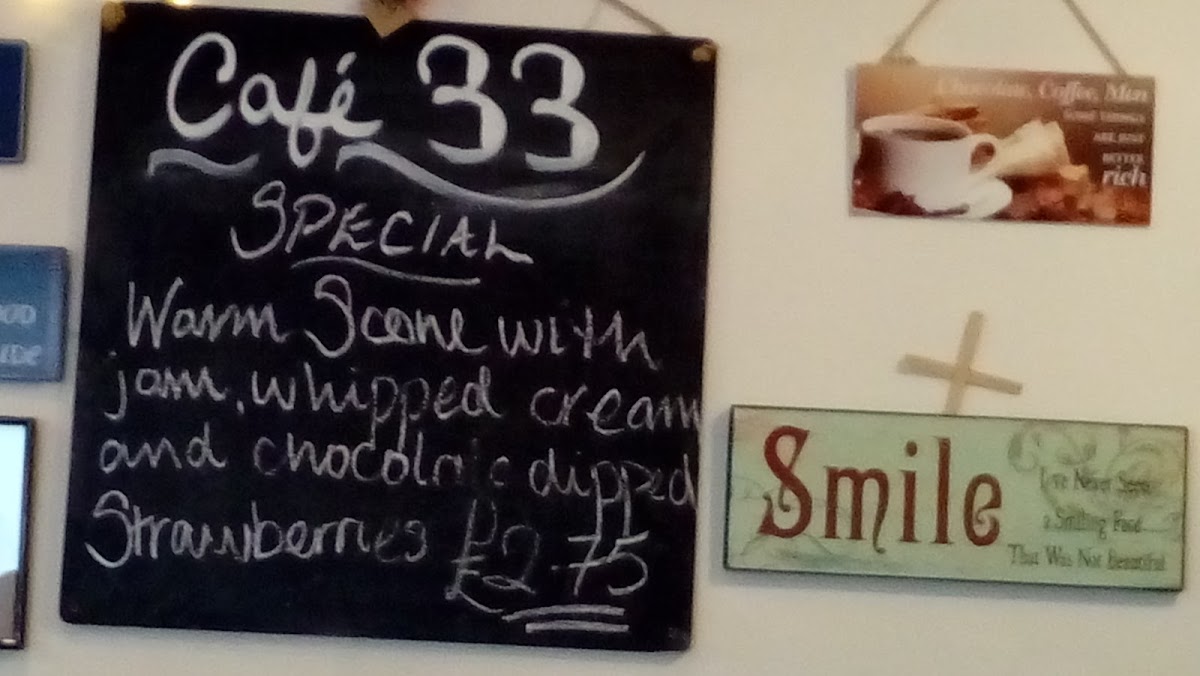 Café 33
SPECIAL
Warm Scone with
jam, whipped cream
and chocolate dipped
Strawberries £2.75
Chocolate, Coffee, Men
SOME THINGS
ARE JUST
BETTER
rich
Smile
I've Never Seen
a Smiling Face
That Was Not Beautiful